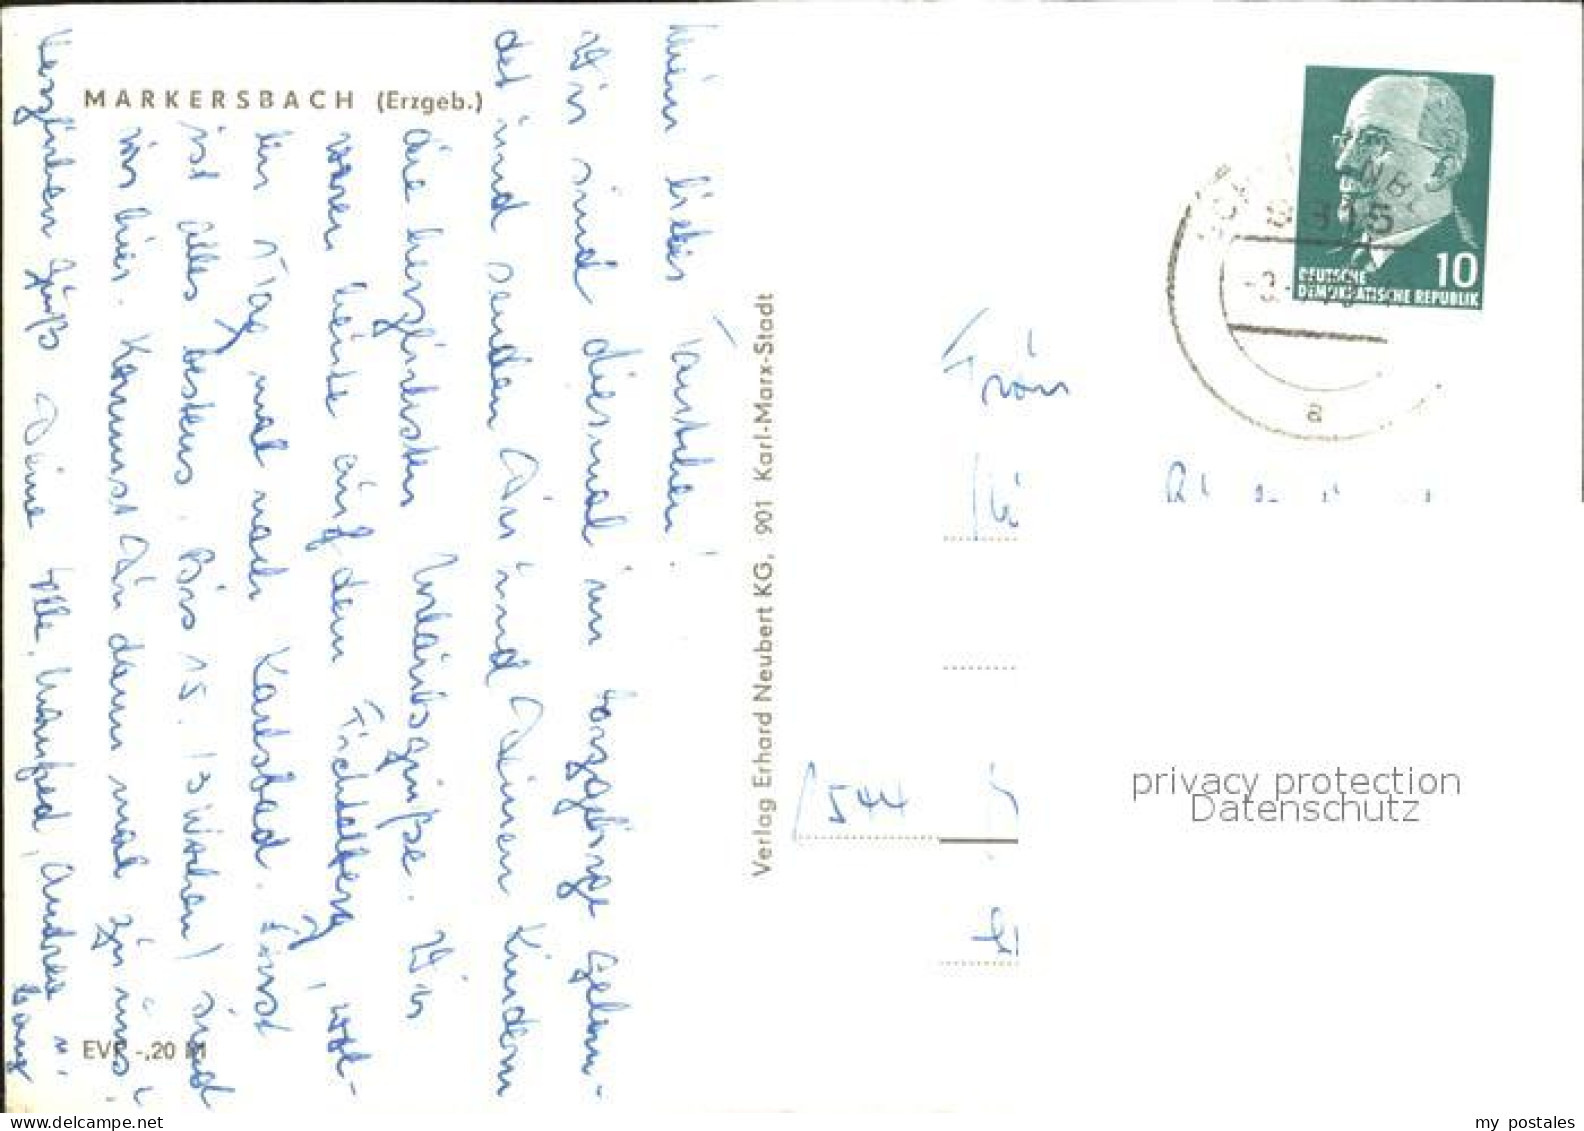 MARKERSBACH (Erzgeb.)
Mein liebes Tantchen!
Wir sind diesmal im Erzgebirge gelan-
det und senden Dir und Deinen Kindern
die herzlichsten Urlaubsgrüße. Wir
waren heute auf dem Fichtelberg, wol-
len Tag mal nach Karlsbad. Sonst
ist alles bestens. Bis 15. (3 Wochen) sind
wir hier. Kommst Du dann mal zu uns?
Herzlichen Gruß Deine Elle, Manfred, Andrea u.
EVP -,20 M
Verlag Erhard Neubert KG, 901 Karl-Marx-Stadt
DEUTSCHE
DEMOKRATISCHE REPUBLIK
10
8315
a
Frau
544
privacy protection
Datenschutz
www.delcampe.net
my postales